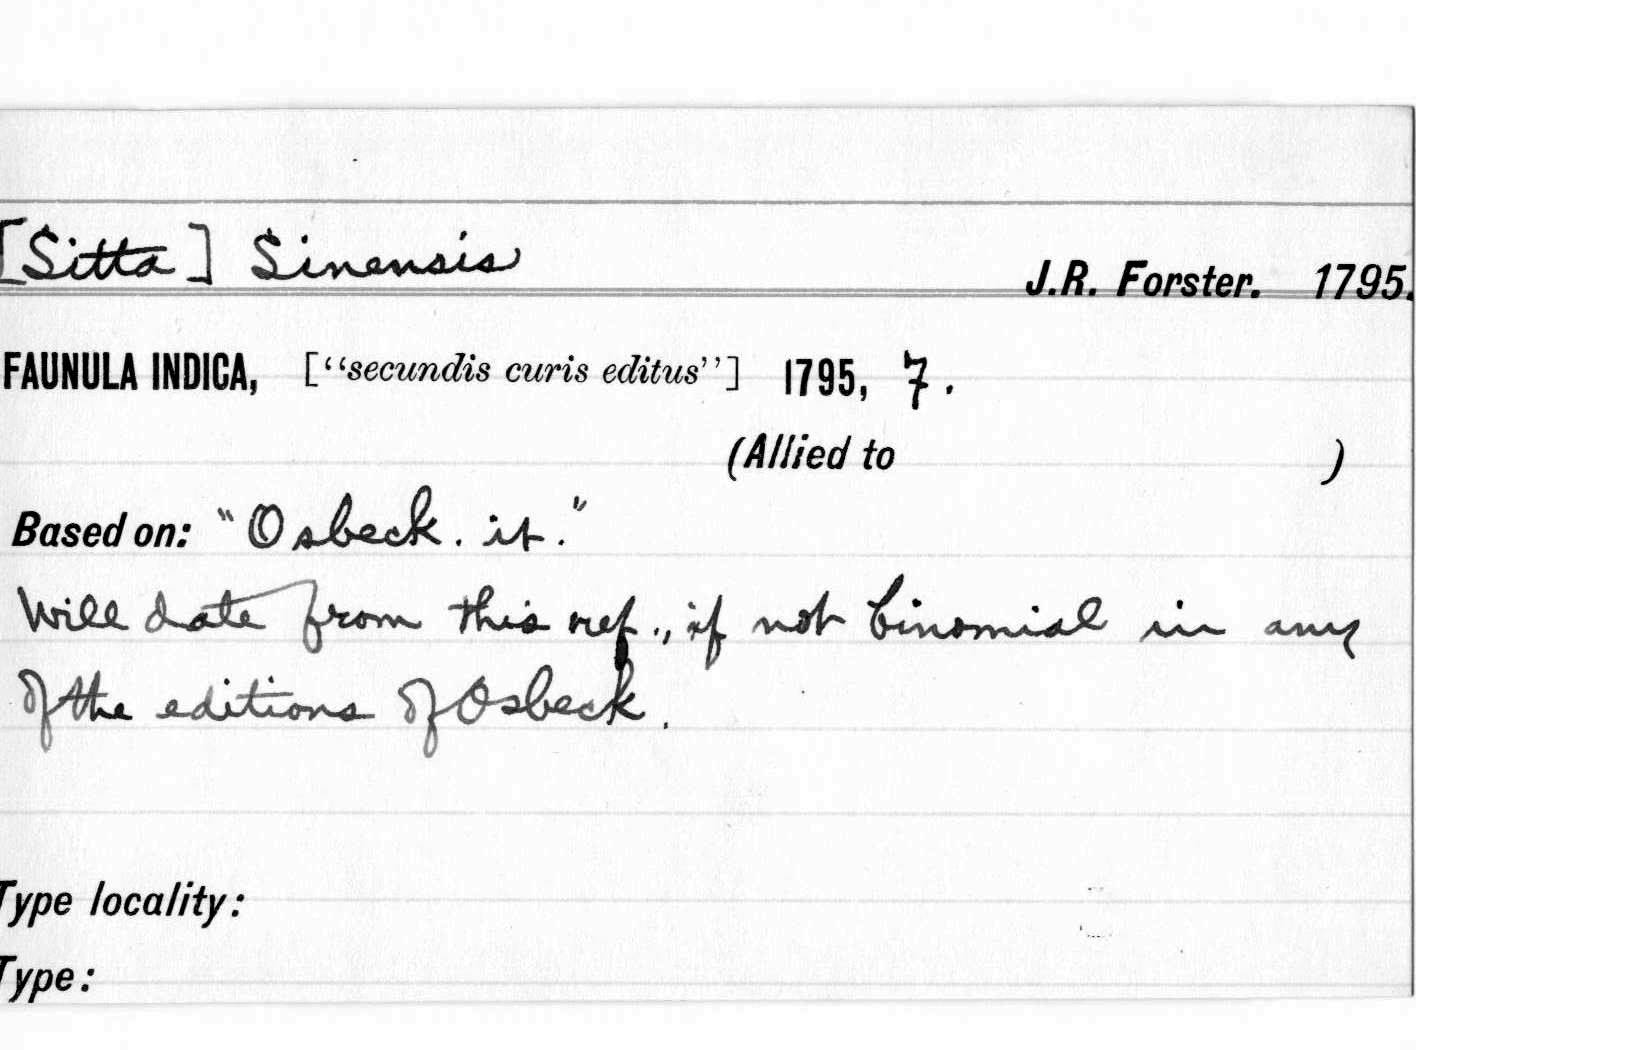 [Sitta] Sinensis
J.R. Forster. 1795.
FAUNULA INDICA, [“secundis curis editus”] 1795, 7.
(Allied to )
Based on: "Osbeck. it."
Will date from this ref., if not binomial in any
of the editions of Osbeck.
Type locality:
Type: